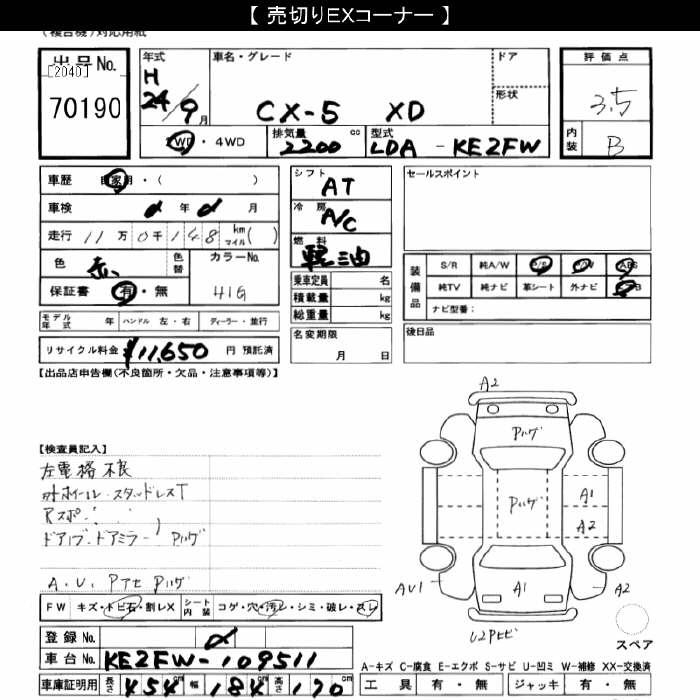 【 売切りEXコーナー 】
(複合機)対応用紙
出品No.
[2040]
70190
年式 H 24/9月
車名・グレード
CX-5 XD
ドア
形状
評価点
3.5
内装 B
2WD・4WD
排気量 2200 cc
型式 LDA - KE2FW
車歴 自家用・( )
車検 年 月
走行 11万0千148 km マイル( )
色 赤 色替
カラーNo. 41G
保証書 有・無
モデル年式 年 ハンドル 左・右 ディーラー・並行
リサイクル料金 ¥11,650 円 預託済
シフト AT
冷房 A/C
燃料 軽油
乗車定員 名
積載量 kg
総重量 kg
名変期限
月 日
セールスポイント
装備品
S/R 純A/W P/S P/W ABS
純TV 純ナビ 革シート 外ナビ
ナビ型番:
後日品
【出品店申告欄(不良箇所・欠品・注意事項等)】
【検査員記入】
左電格不良
外ホイール・スタッドレスT
Rスポ・
ドアノブ・ドアミラー
A.U.
FW キズ・トビ石・割レX シート内装 コゲ・穴・汚レ・シミ・破レ・スレ
A2
A1
A2
AU1
A1
A2
スペア
登録No.
車台No. KE2FW-109511
車庫証明用 長さ 454 cm 幅 184 cm 高さ 170 cm
A-キズ C-腐食 E-エクボ S-サビ U-凹ミ W-補修 XX-交換済
工具 有・無 ジャッキ 有・無